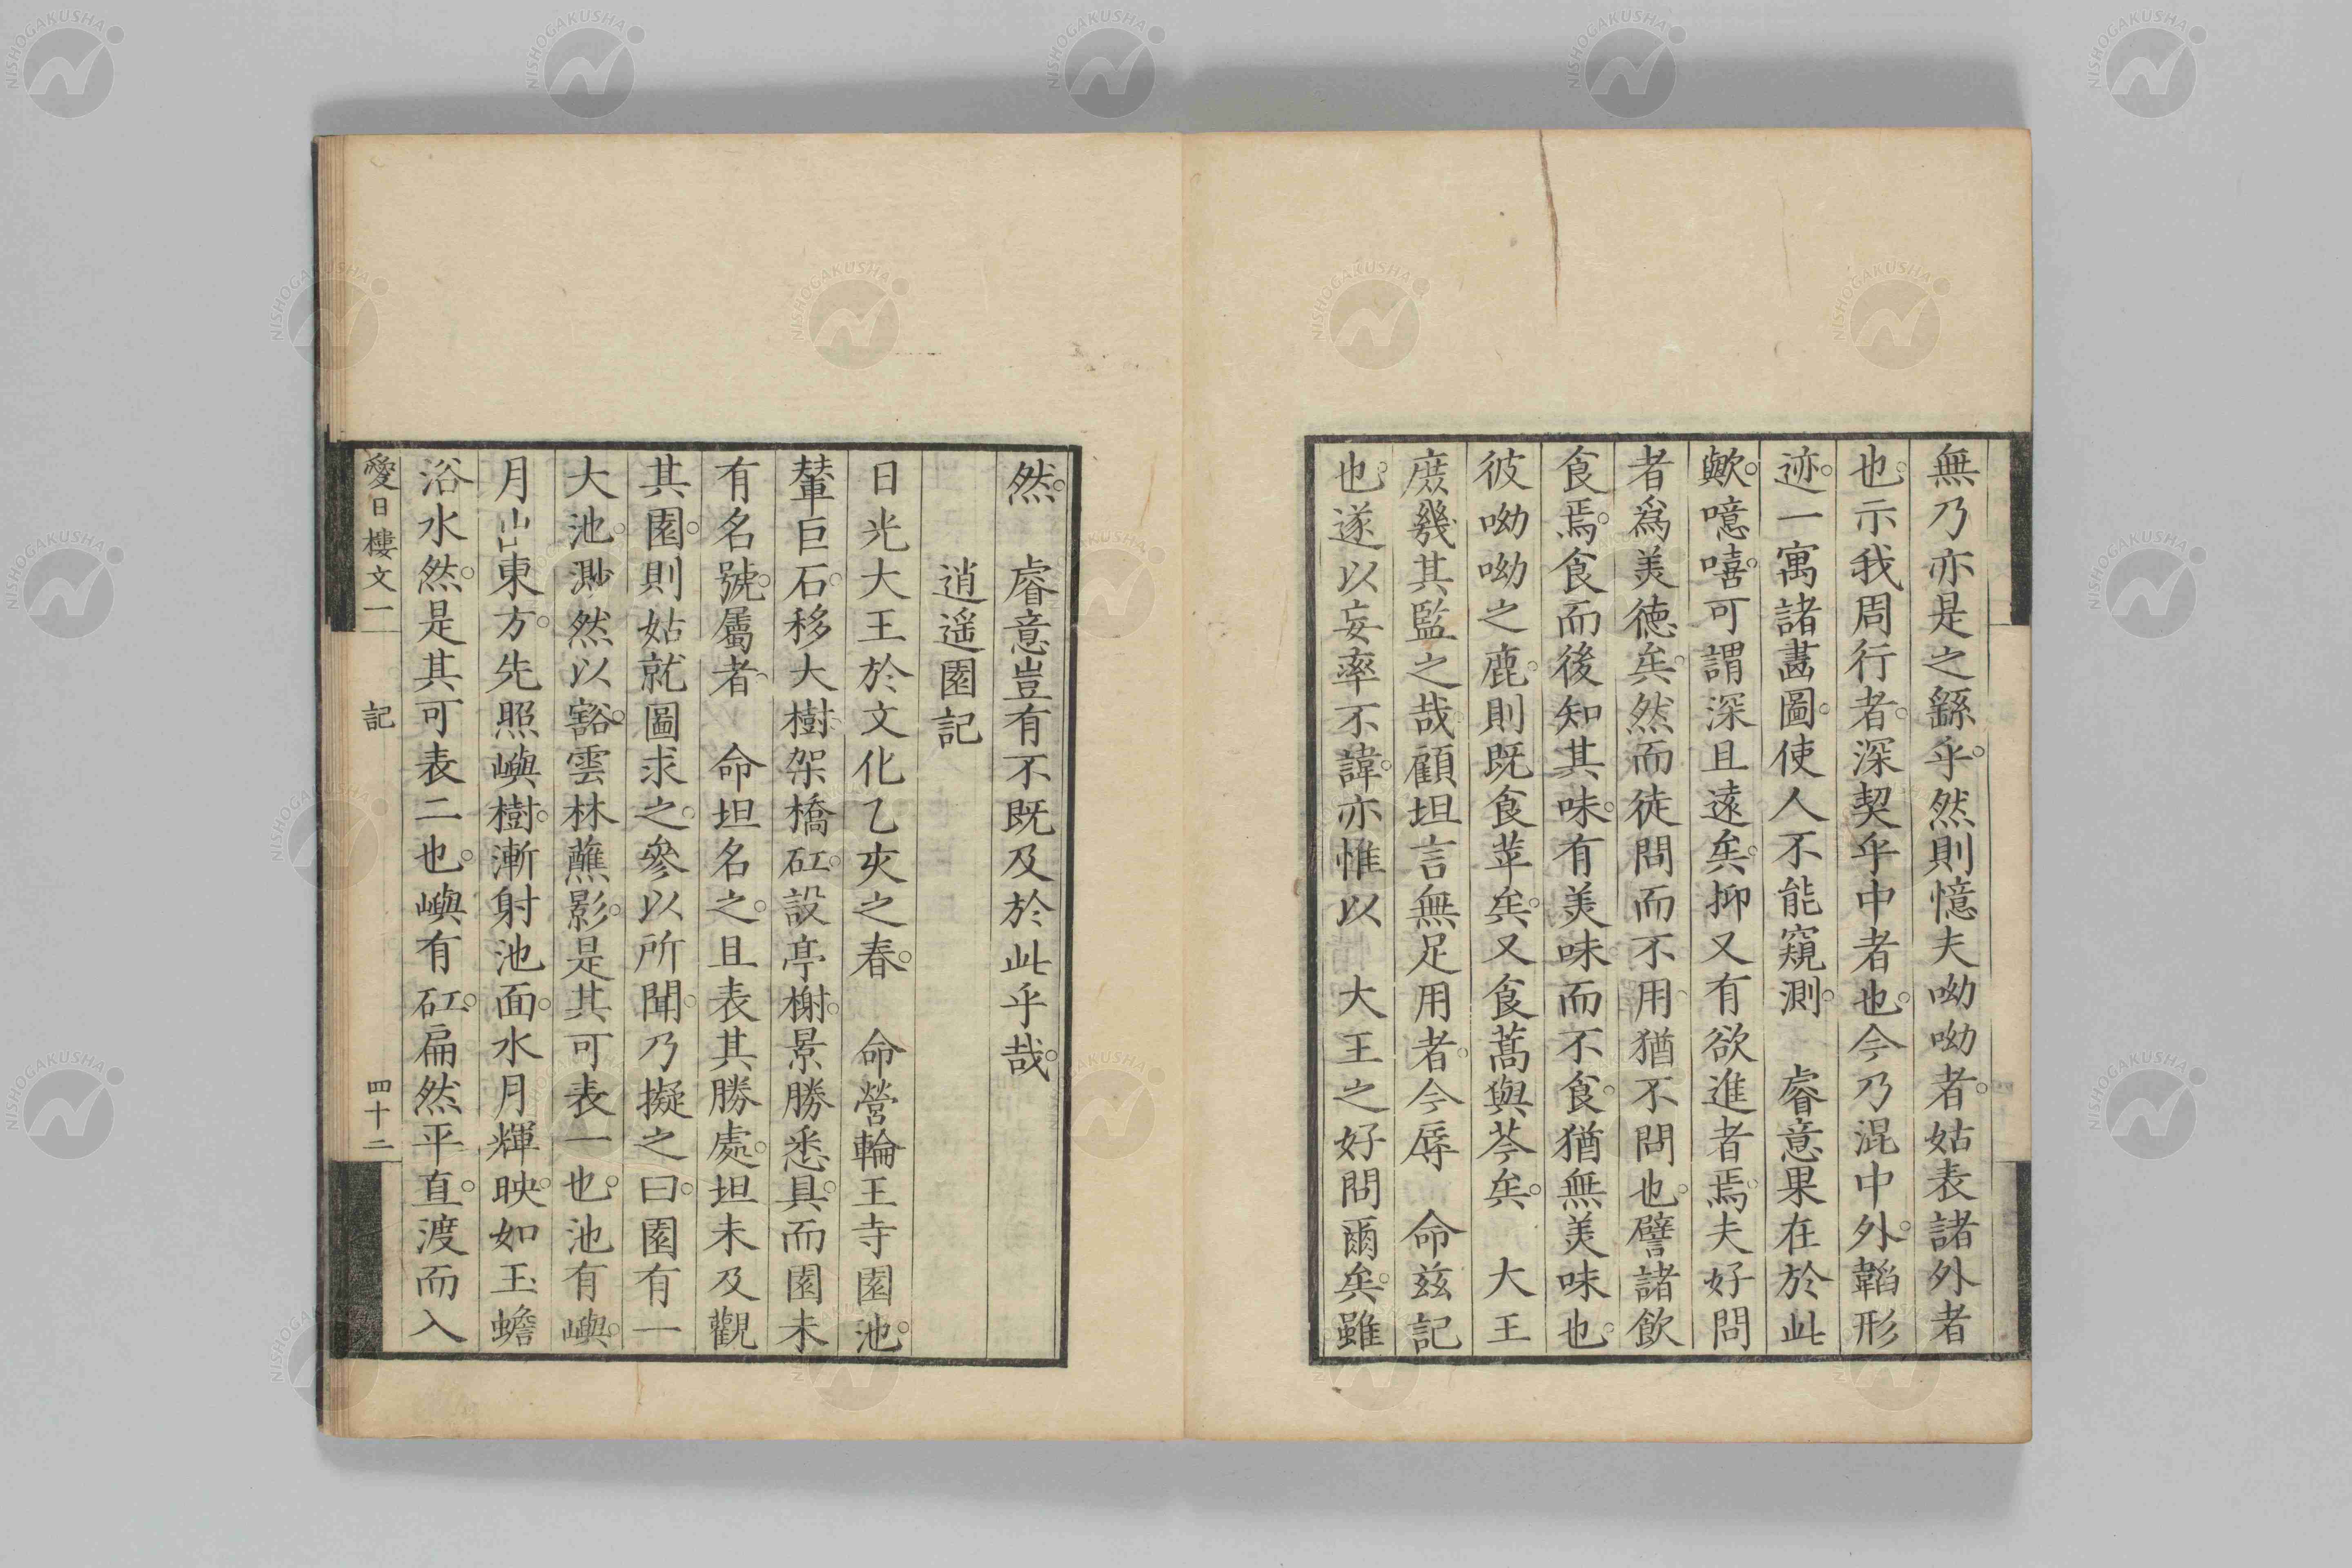 無乃亦是之繇乎。然則憶夫呦呦者。姑表諸外者
也。示我周行者。深契乎中者也。今乃混中外。韜形
迹。一寓諸畵圖。使人不能窺測。　睿意果在於此
歟。噫嘻。可謂深且遠矣。抑又有欲進者焉。夫好問
者爲美德矣。然而徒問而不用。猶不問也。譬諸飲
食焉。食而後知其味。有美味而不食。猶無美味也。
彼呦呦之鹿。則既食苹矣。又食蒿與芩矣。　大王
庶幾其監之哉。顧坦言無足用者。今辱　命茲記
也。遂以妄率不諱。亦惟以　大王之好問爾矣。雖
然。　睿意豈有不既及於此乎哉。
逍遥園記
日光大王於文化乙亥之春。　命營輪王寺園池。
輦巨石。移大樹。架橋矼。設亭榭。景勝悉具。而園未
有名號。屬者　命坦名之。且表其勝處。坦未及觀
其園。則姑就圖求之。參以所聞。乃擬之曰。園有一
大池。渺然以豁。雲林蘸影。是其可表一也。池有嶼。
月出東方。先照嶼樹。漸射池面。水月輝映。如玉蟾
浴水然。是其可表二也。嶼有矼。扁然平直。渡而入
愛日樓文一　記　四十二
NISHOGAKUSHA